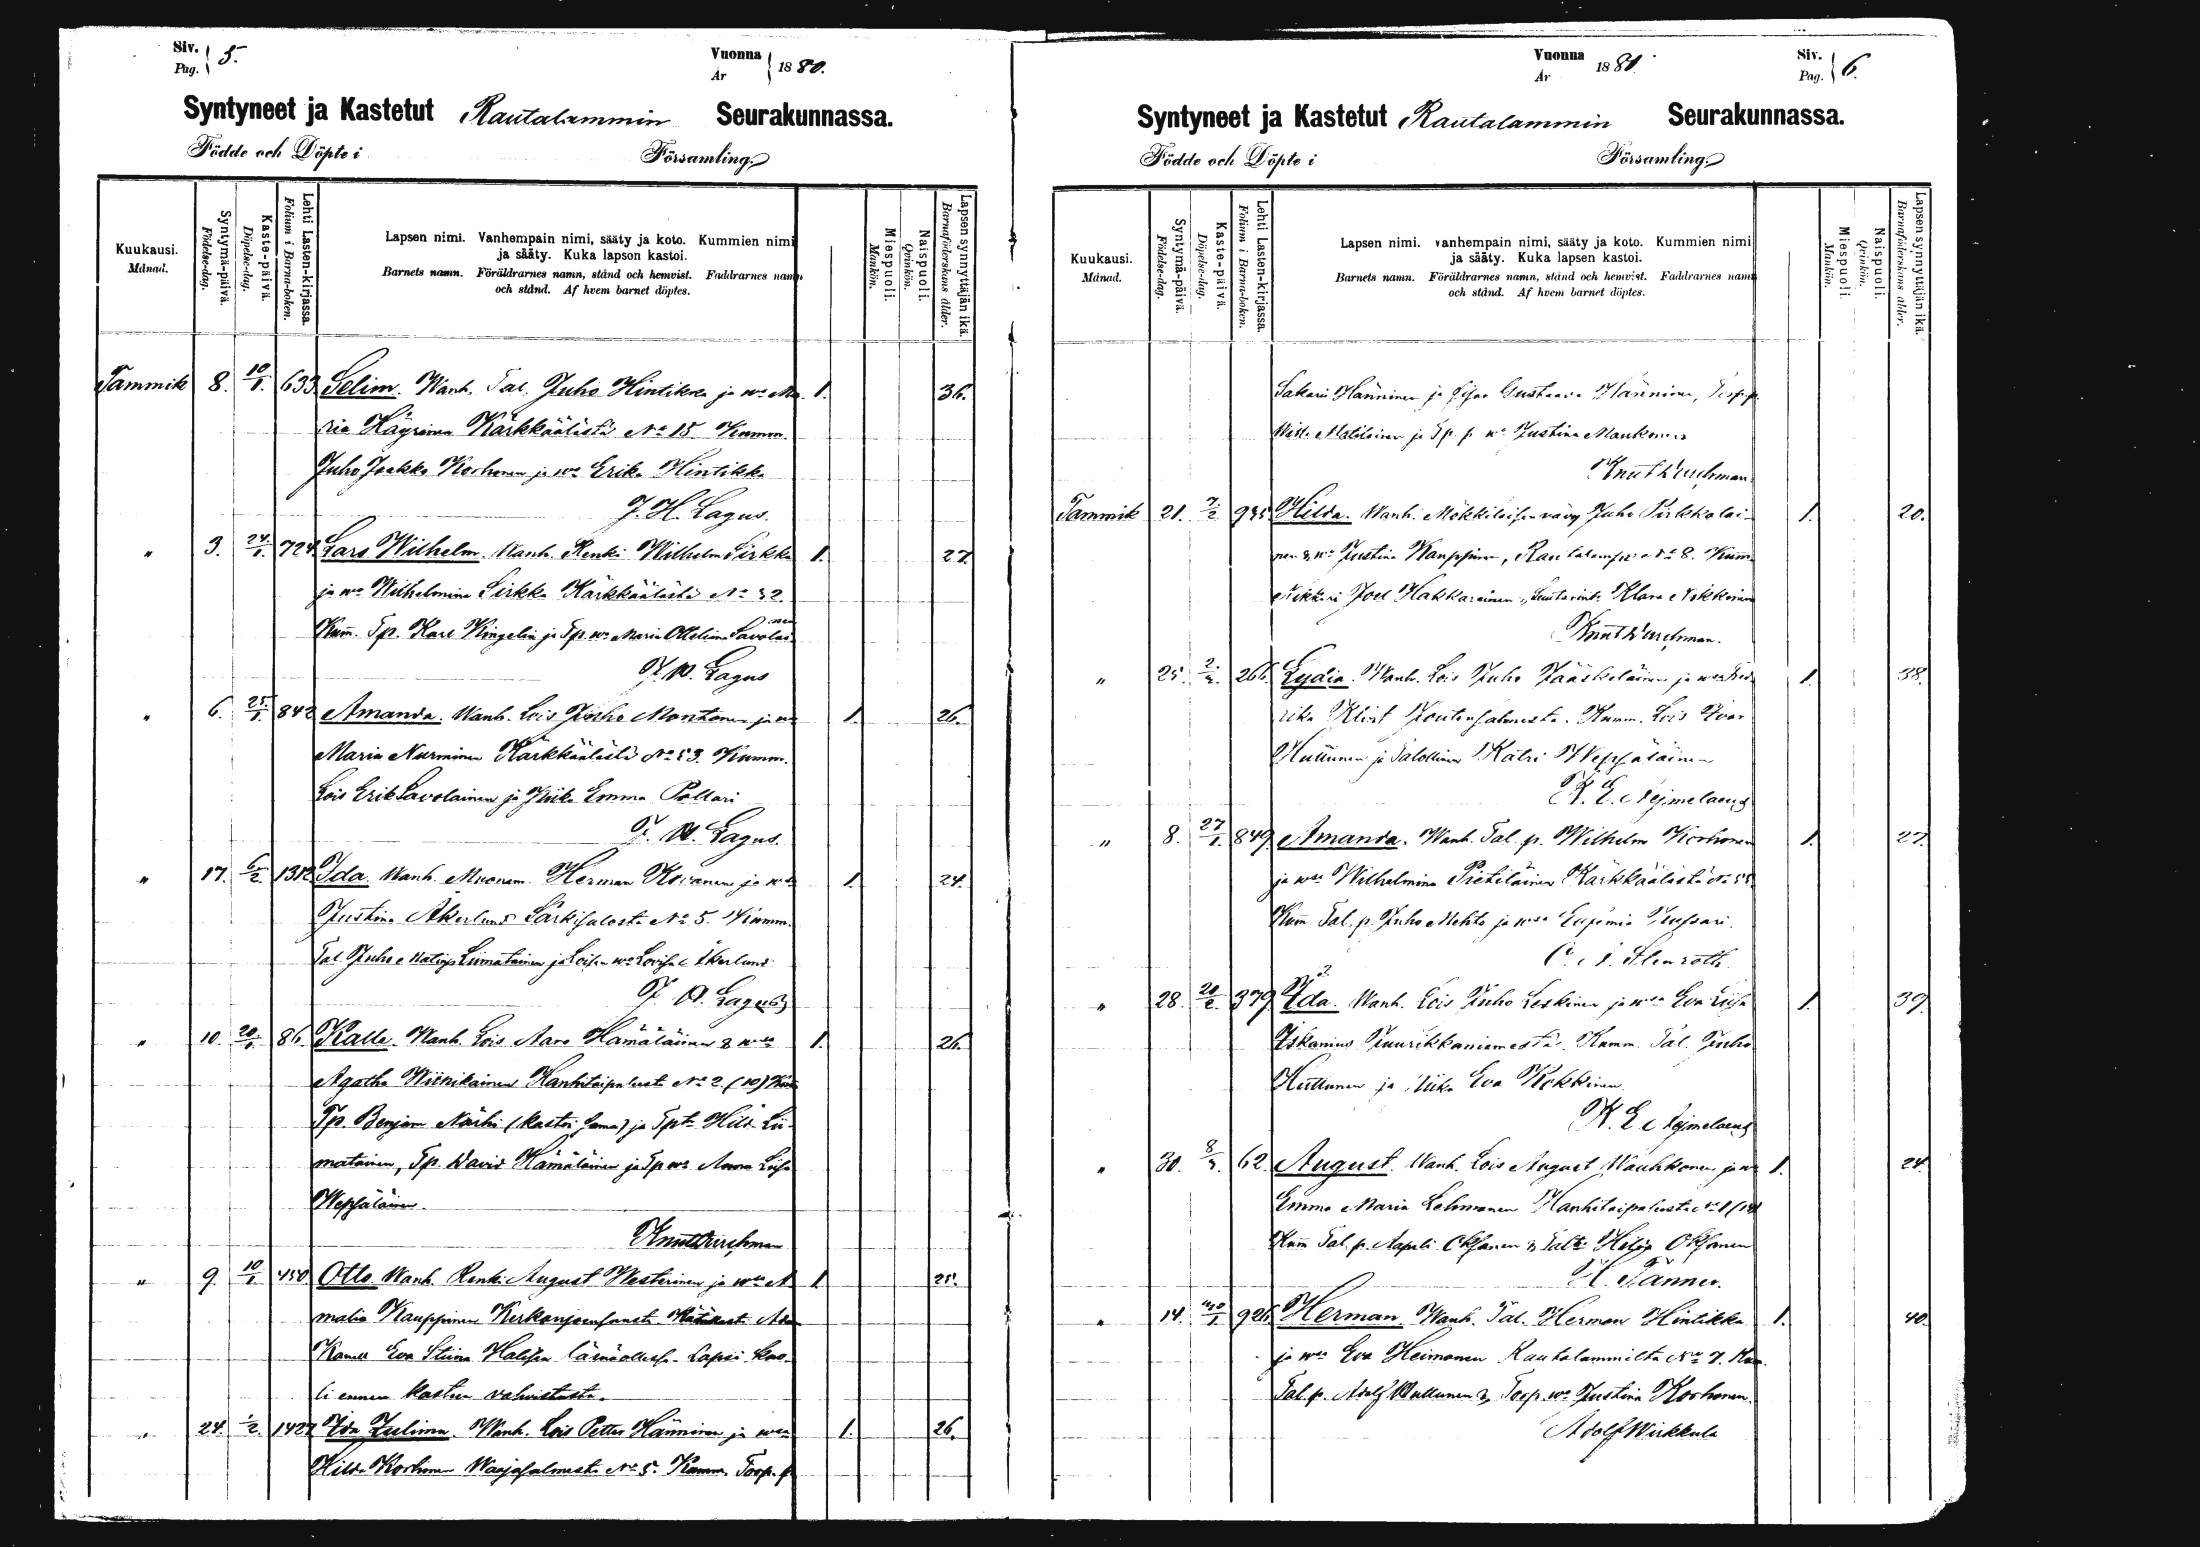 Siv. Pag. 5.
Vuonna År 1880.
Syntyneet ja Kastetut Rautalammin Seurakunnassa.
Födde och Döpte i Församling.
Kuukausi. Månad.
Syntymä-päivä. Födelse-dag.
Kaste-päivä. Döpelse-dag.
Lehti Lasten-kirjassa. Folium i Barna-boken.
Lapsen nimi. Vanhempain nimi, sääty ja koto. Kummien nimi
ja sääty. Kuka lapson kastoi.
Barnets namn. Föräldrarnes namn, stånd och hemvist. Faddrarnes namn
och stånd. Af hvem barnet döptes.
Miespuoli. Mankön.
Naispuoli. Qvinkön.
Lapsen synnyttäjän ikä. Barnaföderskans ålder.
Tammik 8. 10/1. 633 Selim. Wanh. Tal. Juho Hintikka ja wo Ma- 1. 36.
ria Häyrinen Kärkkäälästä No 15 Kumm.
Juho Jaakko Korhonen ja wo Erika Hintikka
J. H. Lagus.
" 3. 24/1. 724 Lars Wilhelm. Wanh. Renki Wilhelm Sirkka 1. 27.
ja wo Wilhelmina Sirkka Kärkkäälästä No 32.
Kum. Tp. Karl Kingelin ja Tp. wo Maria Ottelina Savolainen
Lagus
" 6. 25/1. 842 Amanda. Wanh. Lois Juho Montonen ja wo 1. 26.
Maria Nurminen Kärkkäälästä No 53. Kumm.
Lois Erik Savolainen ja Piika Emma Pollari
Lagus.
" 17. 6/2. 1312 Ida. Wanh. Muonam. Herman Kovanen ja wo 1. 24.
Justina Åkerlund Särkisalosta No 5. Kumm.
Tal. Juho Matinp. Liimatainen ja Loisen wo Lovisa Åkerlund
Lagus
" 10. 20/1. 86. Kalle. Wanh. Lois Aaro Hämäläinen & wo 1. 26.
Agatha Wiinikainen Hanhitaipaleest. No 2. (10)
Tp. Benjam Närhi (kastoi sama) ja Tpt. Hild. Lii-
matainen, Tp. David Hämäläinen ja Tp wo Anna Liisa
Wepsäläinen.
Knut Durchman
" 9. 10/1 450. Otto. Wanh. Renki August Westerinen ja wo A- 1. 25.
malia Kauppinen
Eva Stiina läsnäollessa. Lapsi kuo-
li ennen kasteen vahvistusta.
" 24. 1/2. 1427 Ida Zulima. Wanh. Lois Petter Hänninen ja wo 1. 26.
Hilda Korhonen Waajasalmesta No 5. Kumm. Torp. p.
Siv. Pag. 6.
Vuonna År 1881.
Syntyneet ja Kastetut Rautalammin Seurakunnassa.
Födde och Döpte i Församling.
Kuukausi. Månad.
Syntymä-päivä. Födelse-dag.
Kaste-päivä. Döpelse-dag.
Lehti Lasten-kirjassa. Folium i Barna-boken.
Lapsen nimi. Vanhempain nimi, sääty ja koto. Kummien nimi
ja sääty. Kuka lapsen kastoi.
Barnets namn. Föräldrarnes namn, stånd och hemvist. Faddrarnes namn
och stånd. Af hvem barnet döptes.
Miespuoli. Mankön.
Naispuoli. Qvinkön.
Lapsen synnyttäjän ikä. Barnaföderskans ålder.
Sakari Hänninen ja Gustaava Hänninen, Torp. p.
Matilainen ja Tp. p. wo Justina Maukonen
Knut Durchman.
Tammik 21. 7/2 935 Hilda. Wanh. Mökkiläisen vävy Juho Pirkkalai- 1. 20.
nen & wo Justina Kauppinen, No 8. Kumm.
Nikkari Joel Hakkarainen, Klara Nikkonen
Knut Durchman.
" 25. 266. Lydia. Wanh. Lois Juho Jääskeläinen ja wo Fred- 1. 38.
rika Klint Koutensalmesta. Kumm. Lois Ivar
Huttunen ja Talollinen Katri Wepsäläinen
K. E. Nejmelaeus
" 8. 27/1. 849. Amanda. Wanh. Tal. p. Wilhelm Korhonen 1. 27.
ja wo Wilhelmina Pietiläinen Kärkkäälästä No 55.
Kum. Tal. p. Juho Mehto ja wo Eufemia Jussari.
Stenroth.
" 28. 20/2. 379. Ida. Wanh. Lois Juho Leskinen ja wo Eva Liisa 1. 39.
Iskanius Kumm. Tal. Juho
Huttunen ja Piika Eva Kokkinen.
K. E. Nejmelaeus
" 30. 62. August. Wanh. Lois August Wauhkonen ja wo 1. 24.
Emma Maria Lehmonen Hanhitaipaleesta No 1
Kum Tal. p. Aapeli Oksanen & Talt. Hilja Oksanen
H. Fänner.
" 14. 926. Herman. Wanh. Tal. Herman Hintikka 1. 40.
ja wo Eva Heimonen Rautalammilta No 7. Kum.
Tal. p. Adolf Kuttunen & Torp. wo Justina Korhonen.
Adolf Wirkkula